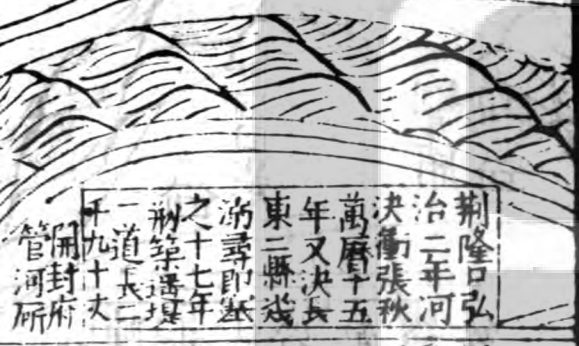 荆隆口弘
治二年河
決衝張秋
萬曆十五
年又決長
東二縣幾
渰尋即塞
之十七年
刱築遙堤
一道長二
千九十丈
開封府
管河所